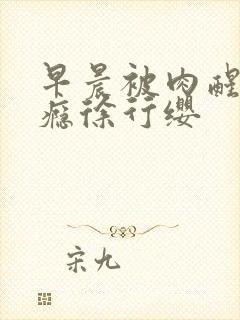 早晨被肉醒
瘾徐行缨
宋九